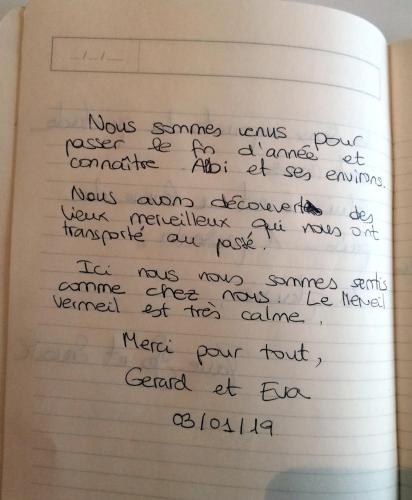 Nous sommes venus pour
passer le fin d'année et
connaître Albi et ses environs.
Nous avons découvert des
lieux merveilleux qui nous ont
transporté au passé.
Ici nous nous sommes sentis
comme chez nous. Le Merveil
vermeil est très calme.
Merci pour tout,
Gerard et Eva
03/01/19